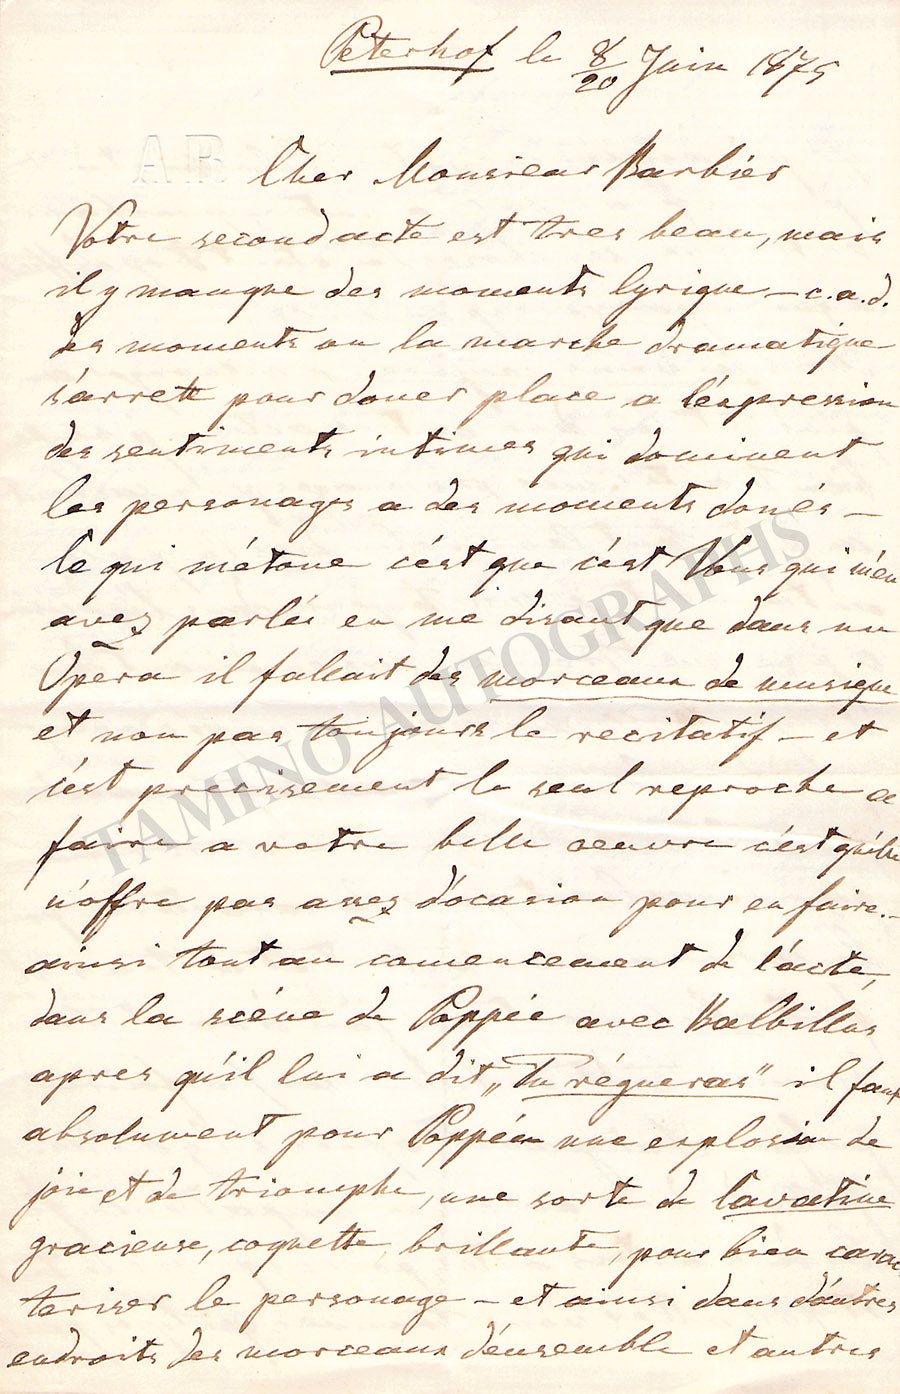 Peterhof le 8/20 Juin 1875
AR
Cher Monsieur Barbier
Votre second acte est tres beau, mais
il y manque des moments lyrique – c.a.d.
des moments ou la marche dramatique
s'arrete pour doner place a l'éxpression
des sentiments intimes qui dominent
les personages a des moments donés –
Ce qui m'étone c'ést que c'ést Vous qui m'en
avez parlés en me disant que dans un
Opera il fallait des morceaux de musique
et non pas toujours le recitatif – et
c'est precisement le seul reproche a
faire a votre belle oeuvre c'ést qu'elle
n'offre pas assez d'ocasion pour en faire. –
ainsi tout au comencement de l'acte,
dans la scéne de Poppée avec Balbillus
apres qu'il lui a dit „Tu régneras" il faut
absolument pour Poppée une explosion de
joie et de triomphe, une sorte de Cavatine
gracieuse, coquette, brillante, pour bien carac
teriser le personage – et ainsi dans d'autres
endroits des morceaux d'énsemble et autres
TAMINO AUTOGRAPHS